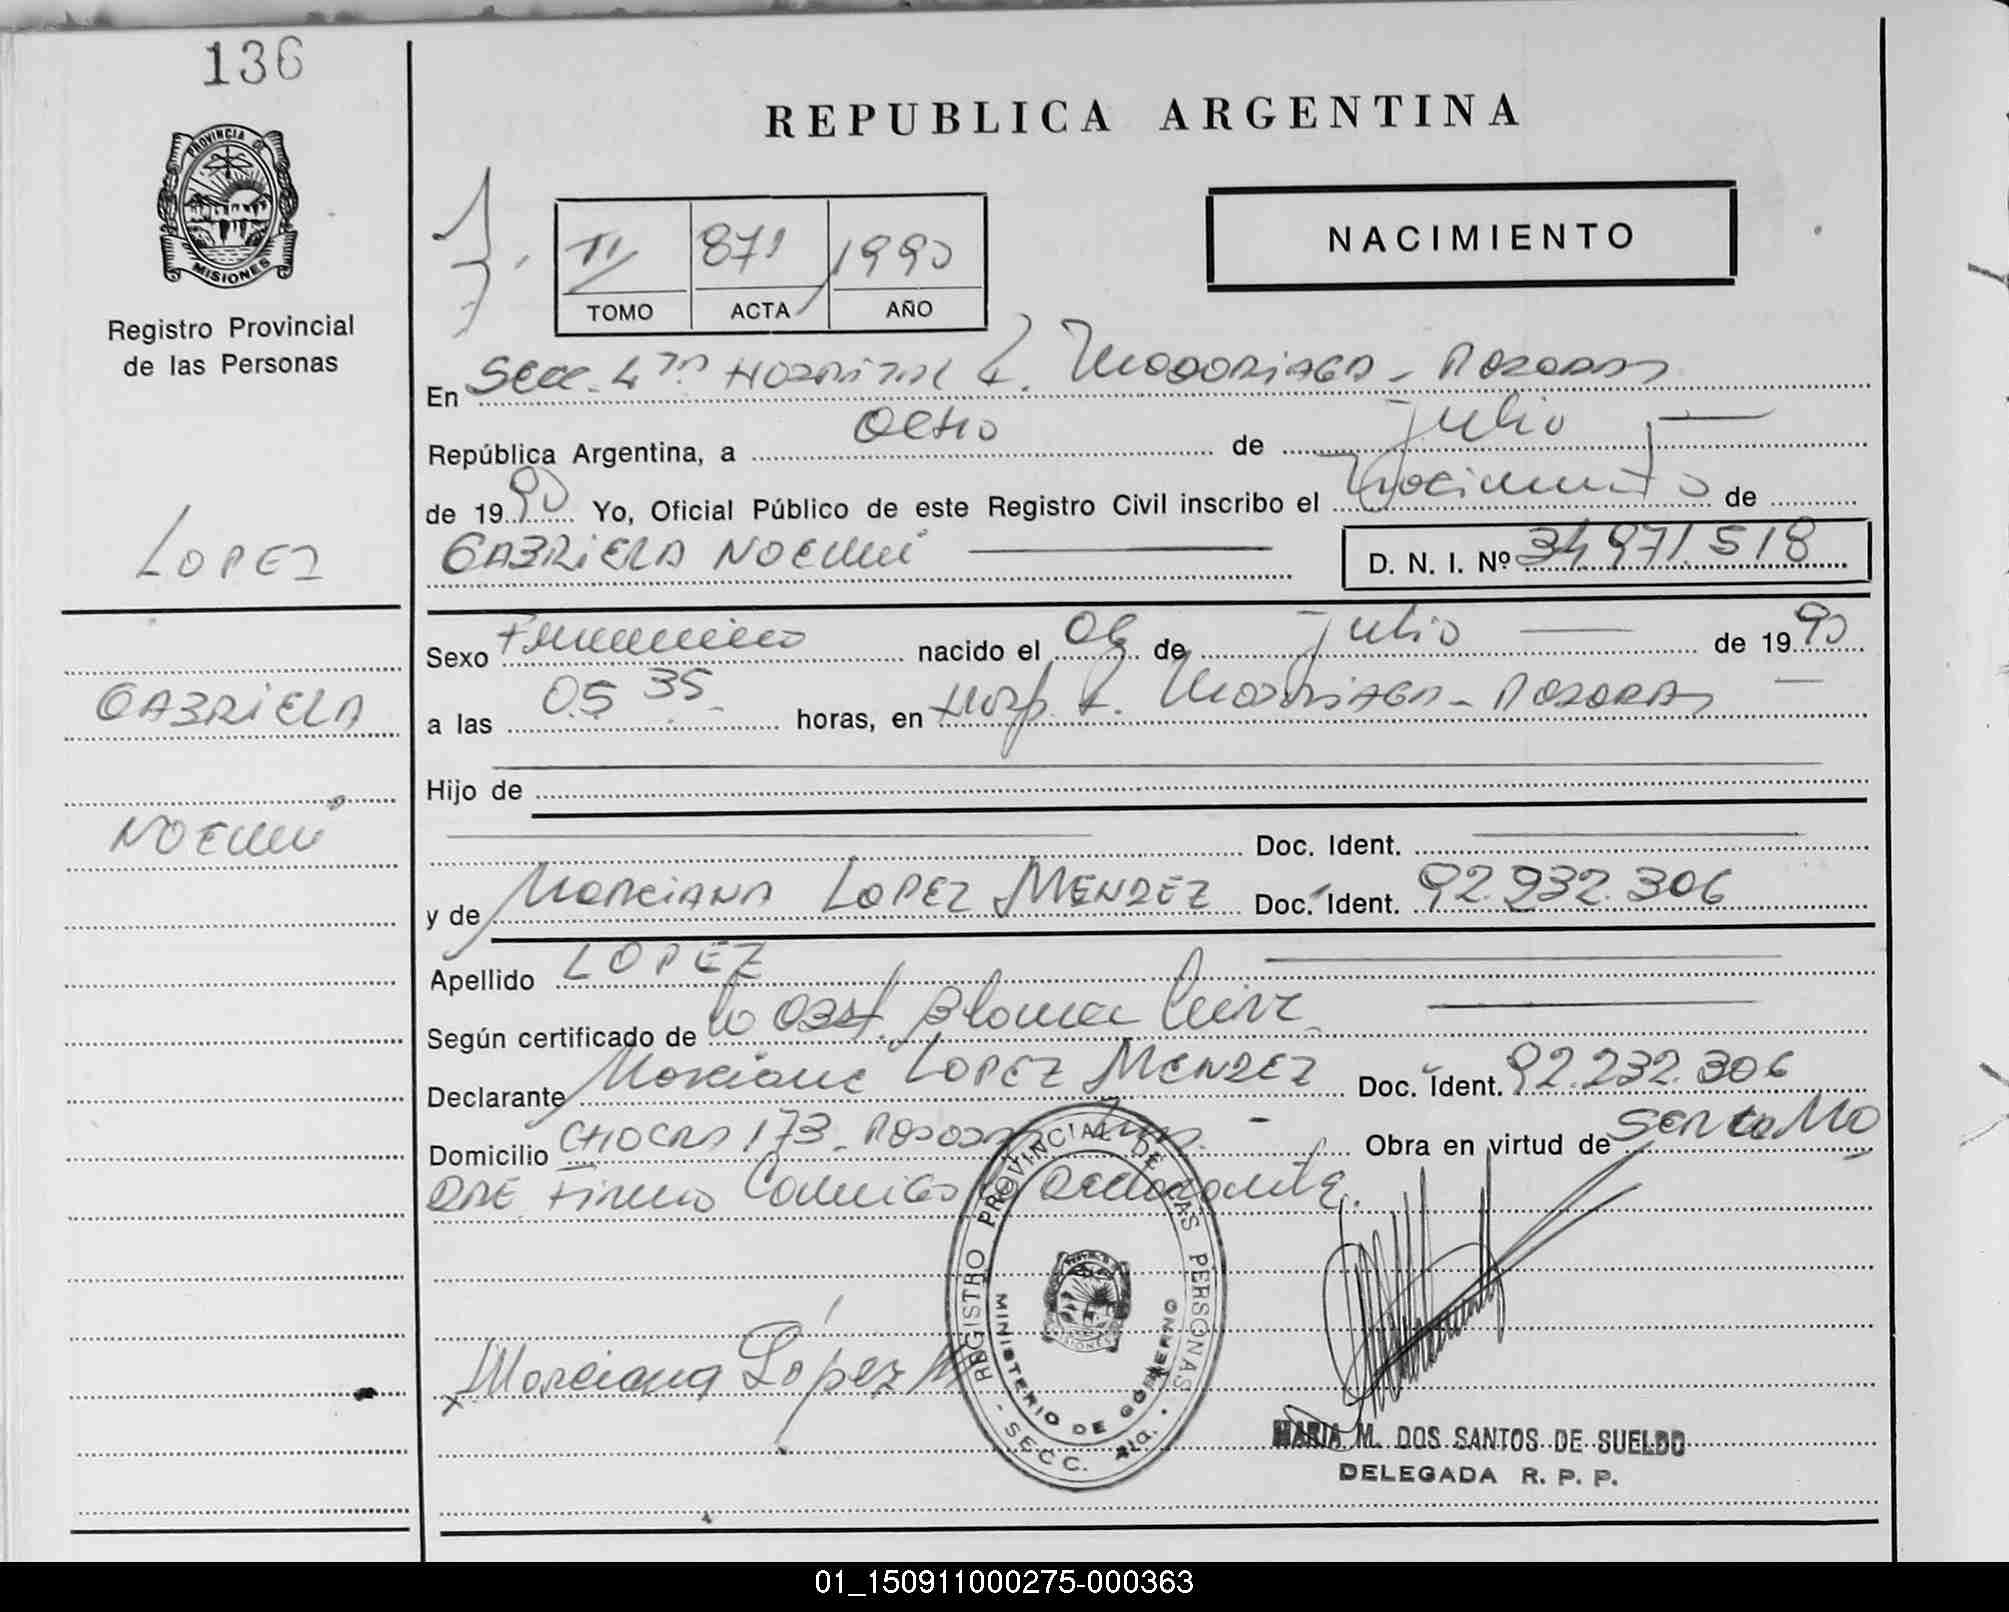 136
PROVINCIA DE
MISIONES
Registro Provincial
de las Personas
REPUBLICA ARGENTINA
NACIMIENTO
II 871 1990
TOMO ACTA AÑO
En Secc. 4ta Hospital R. Madariaga - Posadas
República Argentina, a Ocho de Julio
de 1990 Yo, Oficial Público de este Registro Civil inscribo el Nacimiento de
GABRIELA NOEMI D. N. I. Nº 34.971.518
LOPEZ
GABRIELA
NOEMI
Sexo Femenino nacido el 08 de Julio de 1990
a las 05 35 horas, en Hosp. R. Madariaga - Posadas
Hijo de
Doc. Ident.
y de Marciana LOPEZ MENDEZ Doc. Ident. 92.232.306
Apellido LOPEZ
Según certificado de la Obst. Blanca
Declarante Marciana LOPEZ MENDEZ Doc. Ident. 92.232.306
Domicilio 173 - Posadas Obra en virtud de ser la Ma
dre Firma Conmigo Declarante.
Marciana López M
REGISTRO PROVINCIAL DE LAS PERSONAS
MINISTERIO DE GOBIERNO
- SECC. 4ta. -
MARIA M. DOS SANTOS DE SUELDO
DELEGADA R. P. P.
01_150911000275-000363